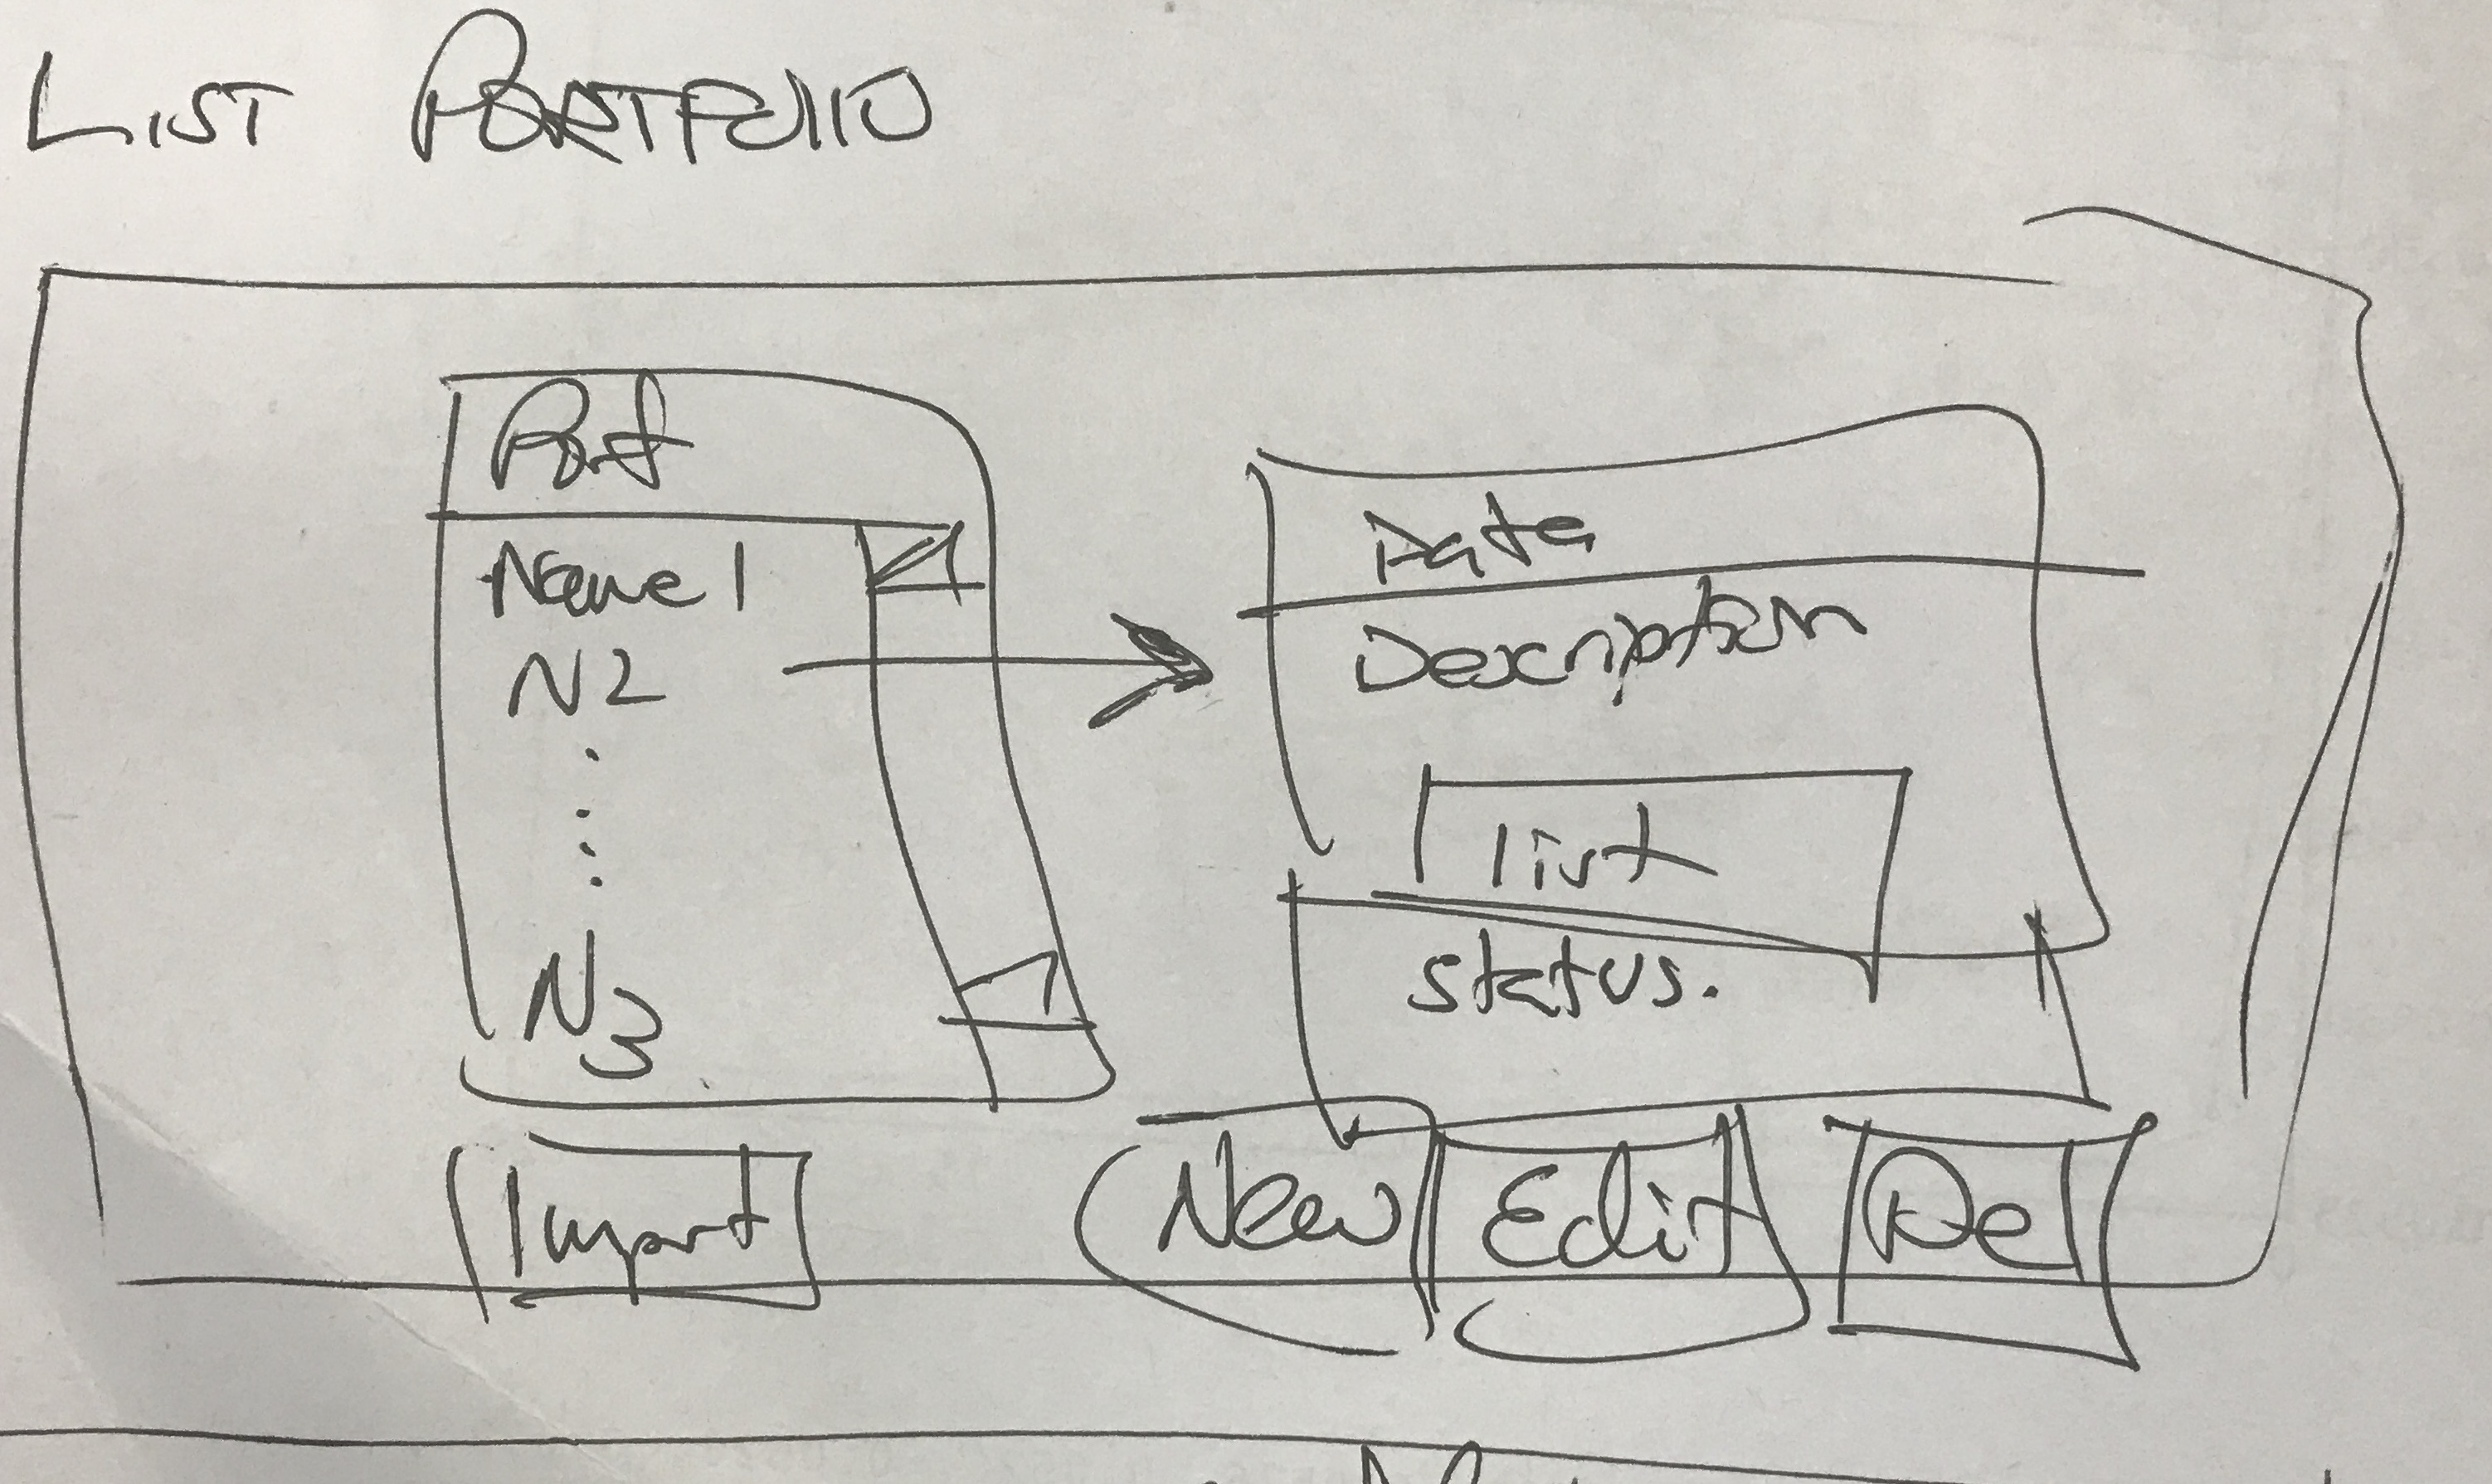 LIST PORTFOLIO
Port
Name 1
N2
N3
Date
Description
list
status.
Import
New
Edit
Del